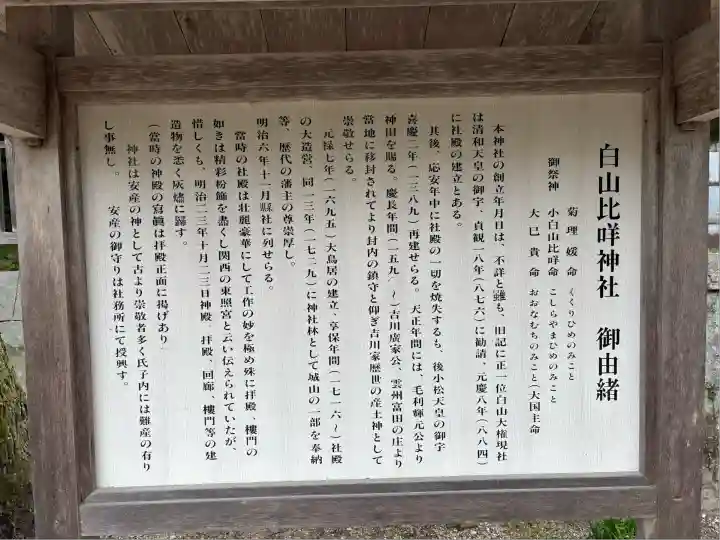 白山比咩神社 御由緒
御祭神
菊理媛命 くくりひめのみこと
小白山比咩命 こしらやまひめのみこと
大己貴命 おおなむちのみこと(大国主命
本神社の創立年月日は、不詳と雖も、旧記に正一位白山大権現社
は清和天皇の御宇、貞観一八年(八七六)に勧請、元慶八年(八八四)
に社殿の建立とある。
其後、応安年中に社殿の一切を焼失するも、後小松天皇の御宇
喜慶二年(一三八九)再建せらる。天正年間には、毛利輝元公より
神田を賜る。慶長年間(一五九 〜)吉川廣家公、雲州富田の庄より
當地に移封されてより封内の鎮守と仰ぎ吉川家歴世の産土神として
崇敬せらる。
元禄七年(一六九五)大鳥居の建立、享保年間(一七一六〜)社殿
の大造営、同一三年(一七二九)に神社林として城山の一部を奉納
等、歴代の藩主の尊崇厚し。
明治六年十一月縣社に列せらる。
當時の社殿は壮麗豪華にして工作の妙を極め殊に拝殿、樓門の
如きは精彩粉飾を盡くし関西の東照宮と云い伝えられていたが、
惜しくも、明治二三年十月二三日神殿、拝殿、回廊、樓門等の建
造物を悉く灰燼に歸す。
(當時の神殿の寫眞は拝殿正面に掲げあり
神社は安産の神として古より崇敬者多く氏子内には難産の有り
し事無し。 安産の御守りは社務所にて授與す。